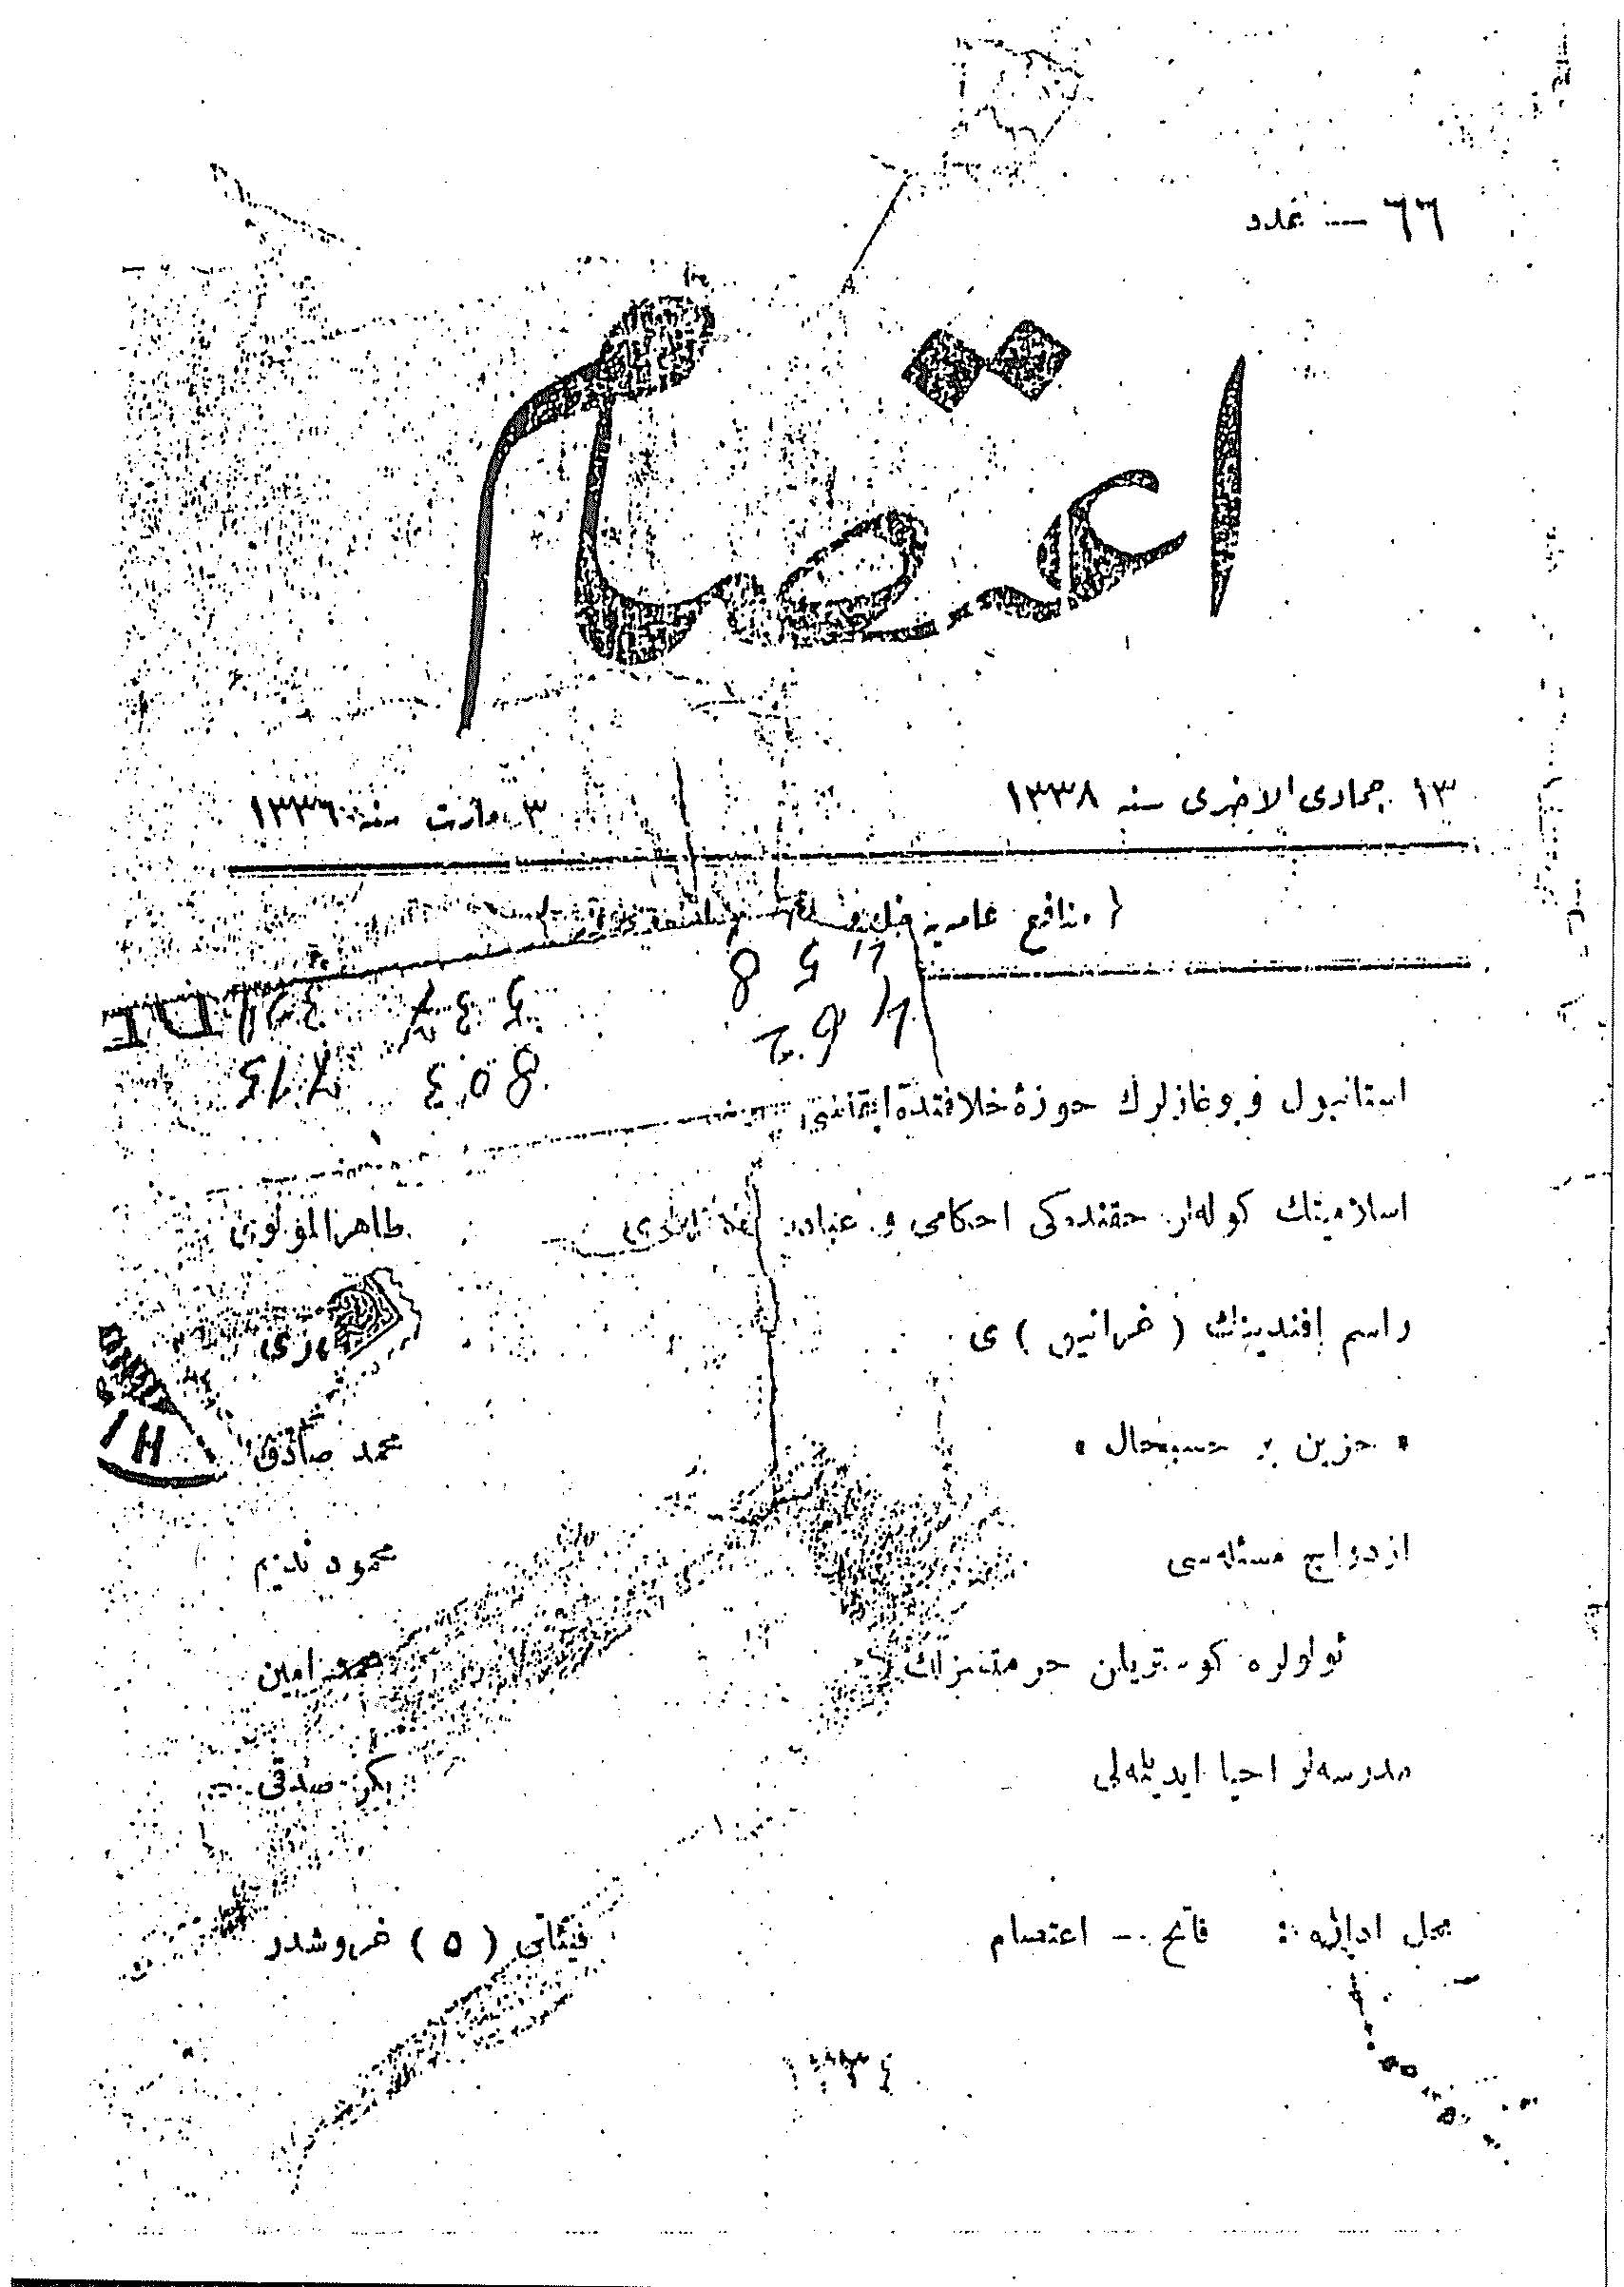 ٦٦ — عدد
اعتصام
١٣ جمادی الاخری سنه ١٣٣٨
٣ مارت سنه ١٣٣٦
{ منافع عامه‌یه
استانبول و بوغازلرك حوزهٔ خلافتده ابقاسی
اسلامیتك كوله‌لر حقنده‌كی احكامی و
طاهر المولوی
راسم افندینك ( غرانیق ) ی
« حزین بر حسبحال »
محمد صادق
ازدواج مسئله‌سی
محمود ندیم
ئولولره كوستریلن حرمتسزلك
محمد امین
مدرسه‌لر احیا ایدیلملی
بكر صدقی
محل اداره : فاتح — اعتصام
فیئاتی ( ٥ ) غروشدر
١٣٣٤